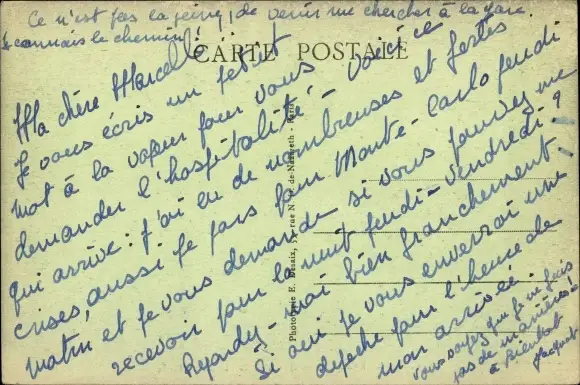 Ce n'est pas la peine de venir me chercher à la gare.
Je connais le chemin!
CARTE POSTALE
Ma chère Marcelle
Je vous écris un petit
mot à la vapeur pour vous
demander l'hospitalité - Voici ce
qui arrive : J'ai eu de nombreuses et fortes
crises, aussi je pars pour Monte-Carlo jeudi
matin et je vous demande si vous pouvez me
recevoir pour la nuit jeudi - vendredi?
Répondez-moi bien franchement!
Si oui je vous enverrai une
depeche pour l'heure de
mon arrivée.
Vous voyez que je ne fais
pas de manières!
à bientôt
Photographie E. rue N. D. de Nazareth - Paris